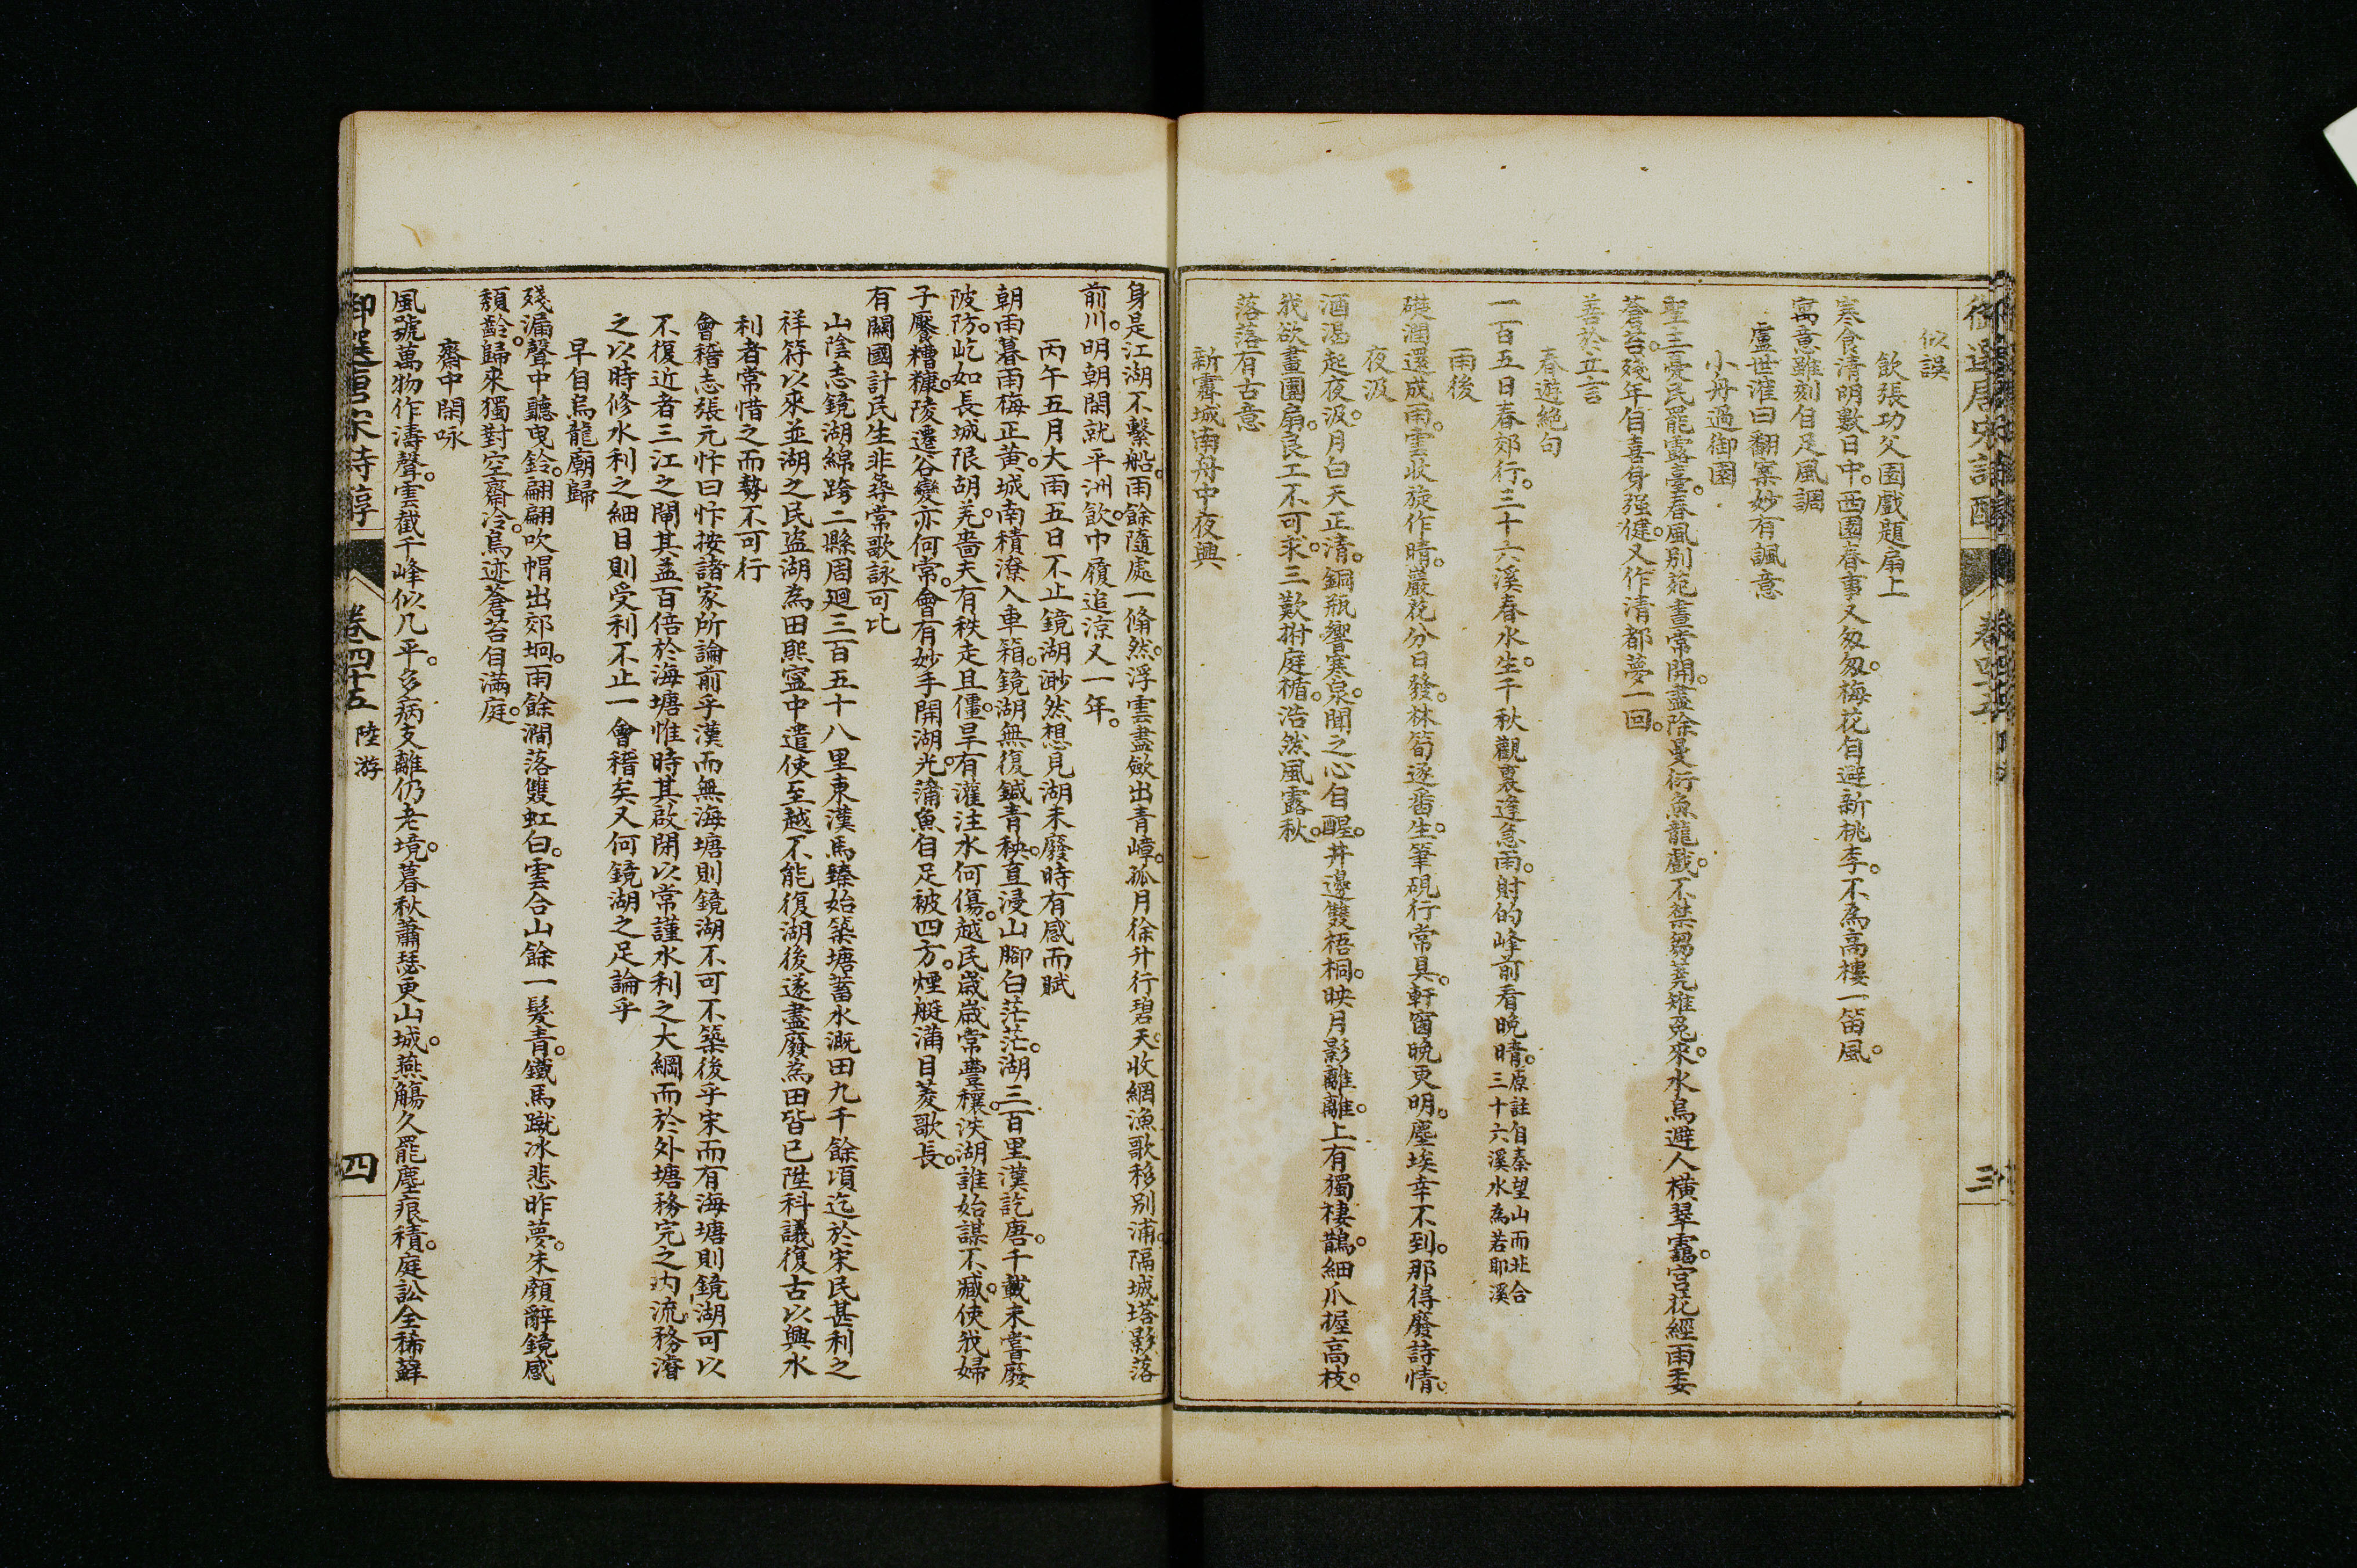 御選唐宋詩醇 卷四十五 三
似誤
飲張功父園戲題扇上
寒食清明數日中。西園春事又匆匆。梅花自避新桃李。不為高樓一笛風。
寓意雖刻自足風調
盧世㴶曰翻案妙有諷意
小舟過御園
聖主憂民罷露臺。春風別苑晝常開。盡除曼衍魚龍戲。不禁芻蕘雉兔來。水鳥避人橫翠靄。宮花經雨委
蒼苔。殘年自喜身强健。又作清都夢一回。
善於立言
春遊絕句
一百五日春郊行。三十六溪春水生。千秋觀裏逢急雨。射的峰前看晚晴。原註自秦望山而北合三十六溪水為若耶溪
雨後
礎潤還成雨。雲收旋作晴。巖花分日發。林筍逐番生。筆硯行常具。軒窗晚更明。塵埃幸不到。那得廢詩情。
夜汲
酒渴起夜汲。月白天正清。銅瓶響寒泉。聞之心自醒。井邊雙梧桐。映月影離離。上有獨棲鵲。細爪握高枝。
我欲畫團扇。良工不可求。三歎拊庭楯。浩然風露秋。
落落有古意
新霽城南舟中夜興
身是江湖不繫船。雨餘隨處一翛然。浮雲盡斂出青嶂。孤月徐升行碧天。收網漁歌移別浦。隔城塔影落
前川。明朝閑就平洲飲。巾履追涼又一年。
丙午五月大雨五日不止鏡湖渺然想見湖未廢時有感而賦
朝雨暮雨梅正黃。城南積潦入車箱。鏡湖無復鍼青秧。直浸山腳白茫茫。湖三百里漢訖唐。千載未嘗廢
陂防。屹如長城限胡羌。嗇夫有秩走且僵。旱有灌注水何傷。越民歲歲常豐穰。泆湖誰始謀不臧。使我婦
子饜糟糠。陵遷谷變亦何常。會有妙手開湖光。蒲魚自足被四方。煙艇滿目菱歌長。
有關國計民生非尋常歌詠可比
山陰志鏡湖綿跨二縣周迴三百五十八里東漢馬臻始築塘蓄水溉田九千餘頃迄於宋民甚利之
祥符以來並湖之民盜湖為田熙寧中遣使至越不能復湖後遂盡廢為田皆已陞科議復古以興水
利者常惜之而勢不可行
會稽志張元忭曰忭按諸家所論前乎漢而無海塘則鏡湖不可不築後乎宋而有海塘則鏡湖可以
不復近者三江之閘其益百倍於海塘惟時其啟閉以常謹水利之大綱而於外塘務完之內流務濬
之以時修水利之細目則受利不止一會稽矣又何鏡湖之足論乎
早自烏龍廟歸
殘漏聲中聽曳鈴。翩翩吹帽出郊坰。雨餘澗落雙虹白。雲合山餘一髮青。鐵馬蹴冰悲昨夢。朱顏辭鏡感
頹齡。歸來獨對空齋冷。鳥迹蒼苔自滿庭。
齋中閑咏
風號萬物作濤聲。雲截千峰似几平。多病支離仍老境。暮秋蕭瑟更山城。燕觴久罷塵痕積。庭訟全稀蘚
御選唐宋詩醇 卷四十五 陸游 四